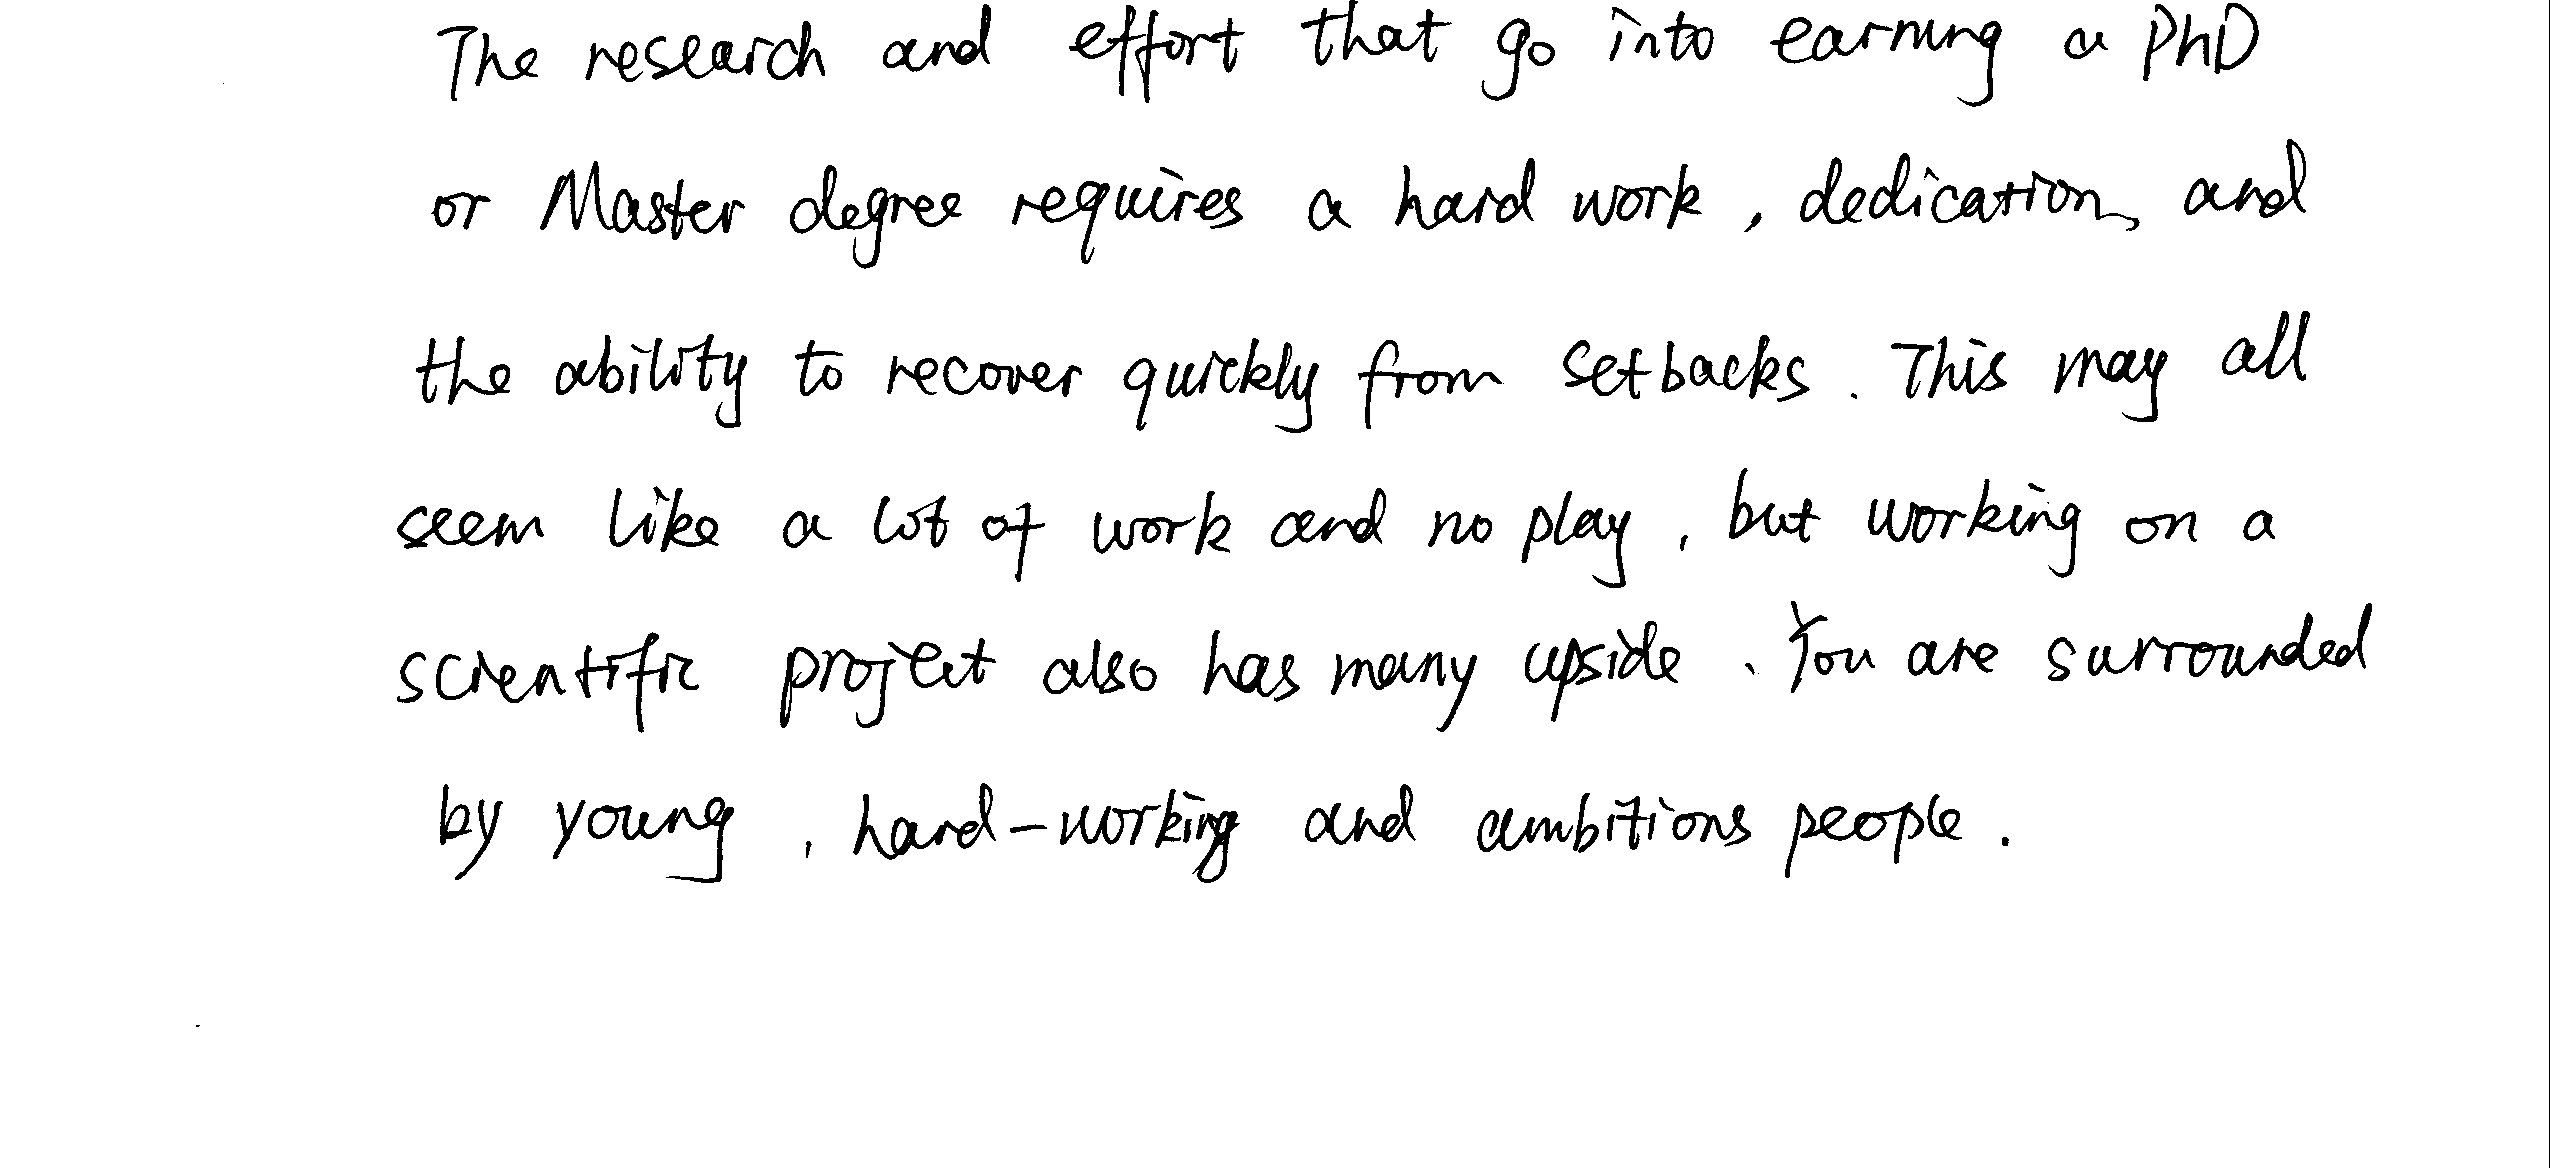 The research and effort that go into earning a PhD
or Master degree requires a hard work, dedication, and
the ability to recover quickly from setbacks. This may all
seem like a lot of work and no play, but working on a
scientific project also has many upside. You are surrounded
by young, hard-working and ambitions people.